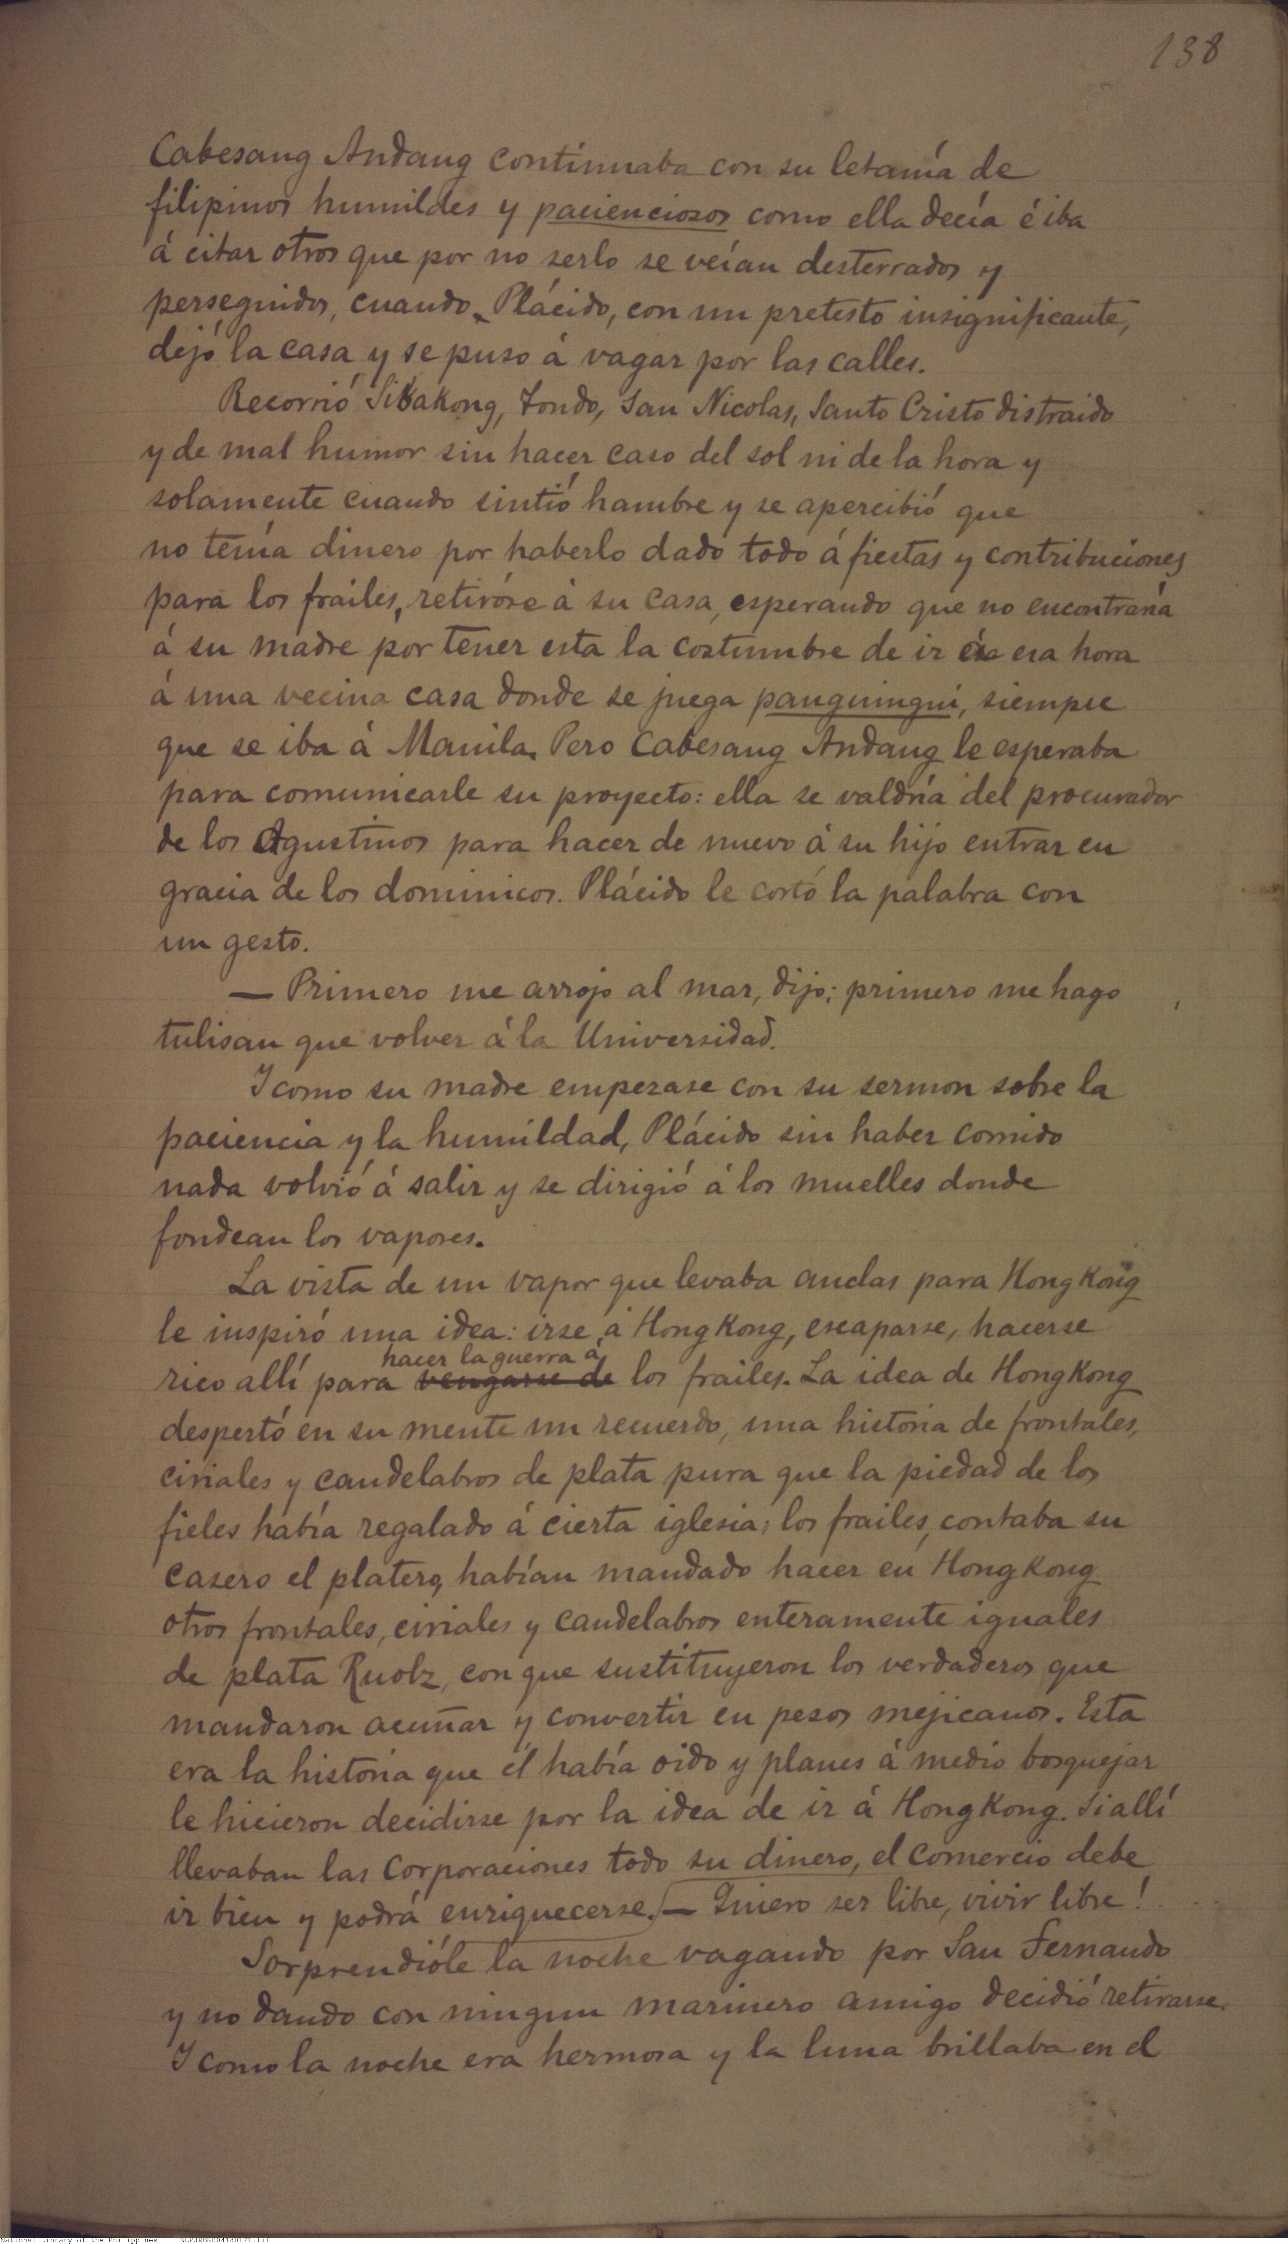 138
Cabesang Andang continuaba con su letanía de
filipinos humildes y pacienciosos como ella decía é iba
á citar otros que por no serlo se veían desterrados y
perseguidos, cuando Plácido, con un pretesto insignificante,
dejó la casa y se puso á vagar por las calles.
Recorrió Sibakong, Tondo, San Nicolas, Santo Cristo distraido
y de mal humor sin hacer caso del sol ni de la hora y
solamente cuando sintió hambre y se apercibió que
no tenía dinero por haberlo dado todo á fiestas y contribuciones
para los frailes, retiróse á su casa, esperando que no encontraría
á su madre por tener esta la costumbre de ir á esa hora
á una vecina casa donde se juega panguingui, siempre
que se iba á Manila. Pero Cabesang Andang le esperaba
para comunicarle su proyecto: ella se valdría del procurador
de los Agustinos para hacer de nuevo á su hijo entrar en
gracia de los dominicos. Plácido le cortó la palabra con
un gesto.
— Primero me arrojo al mar, dijo; primero me hago
tulisan que volver á la Universidad.
Y como su madre empezase con su sermon sobre la
paciencia y la humildad, Plácido sin haber comido
nada volvió á salir y se dirigió á los muelles donde
fondean los vapores.
La vista de un vapor que levaba anclas para Hong Kong
le inspiró una idea: irse á Hong Kong, escaparse, hacerse
hacer la guerra á
rico allí para vengarse de los frailes. La idea de Hong Kong
despertó en su mente un recuerdo, una historia de frontales,
ciriales y candelabros de plata pura que la piedad de los
fieles había regalado á cierta iglesia; los frailes, contaba su
casero el platero, habían mandado hacer en Hong Kong
otros frontales, ciriales y candelabros enteramente iguales
de plata Ruolz, con que sustituyeron los verdaderos que
mandaron acuñar y convertir en pesos mejicanos. Esta
era la historia que él había oido y planes á medio bosquejar
le hicieron decidirse por la idea de ir á Hong Kong. Si allí
llevaban las Corporaciones todo su dinero, el comercio debe
ir bien y podrá enriquecerse. — Quiero ser libre, vivir libre!
Sorprendióle la noche vagando por San Fernando
y no dando con ningun marinero amigo decidió retirarse.
Y como la noche era hermosa y la luna brillaba en el